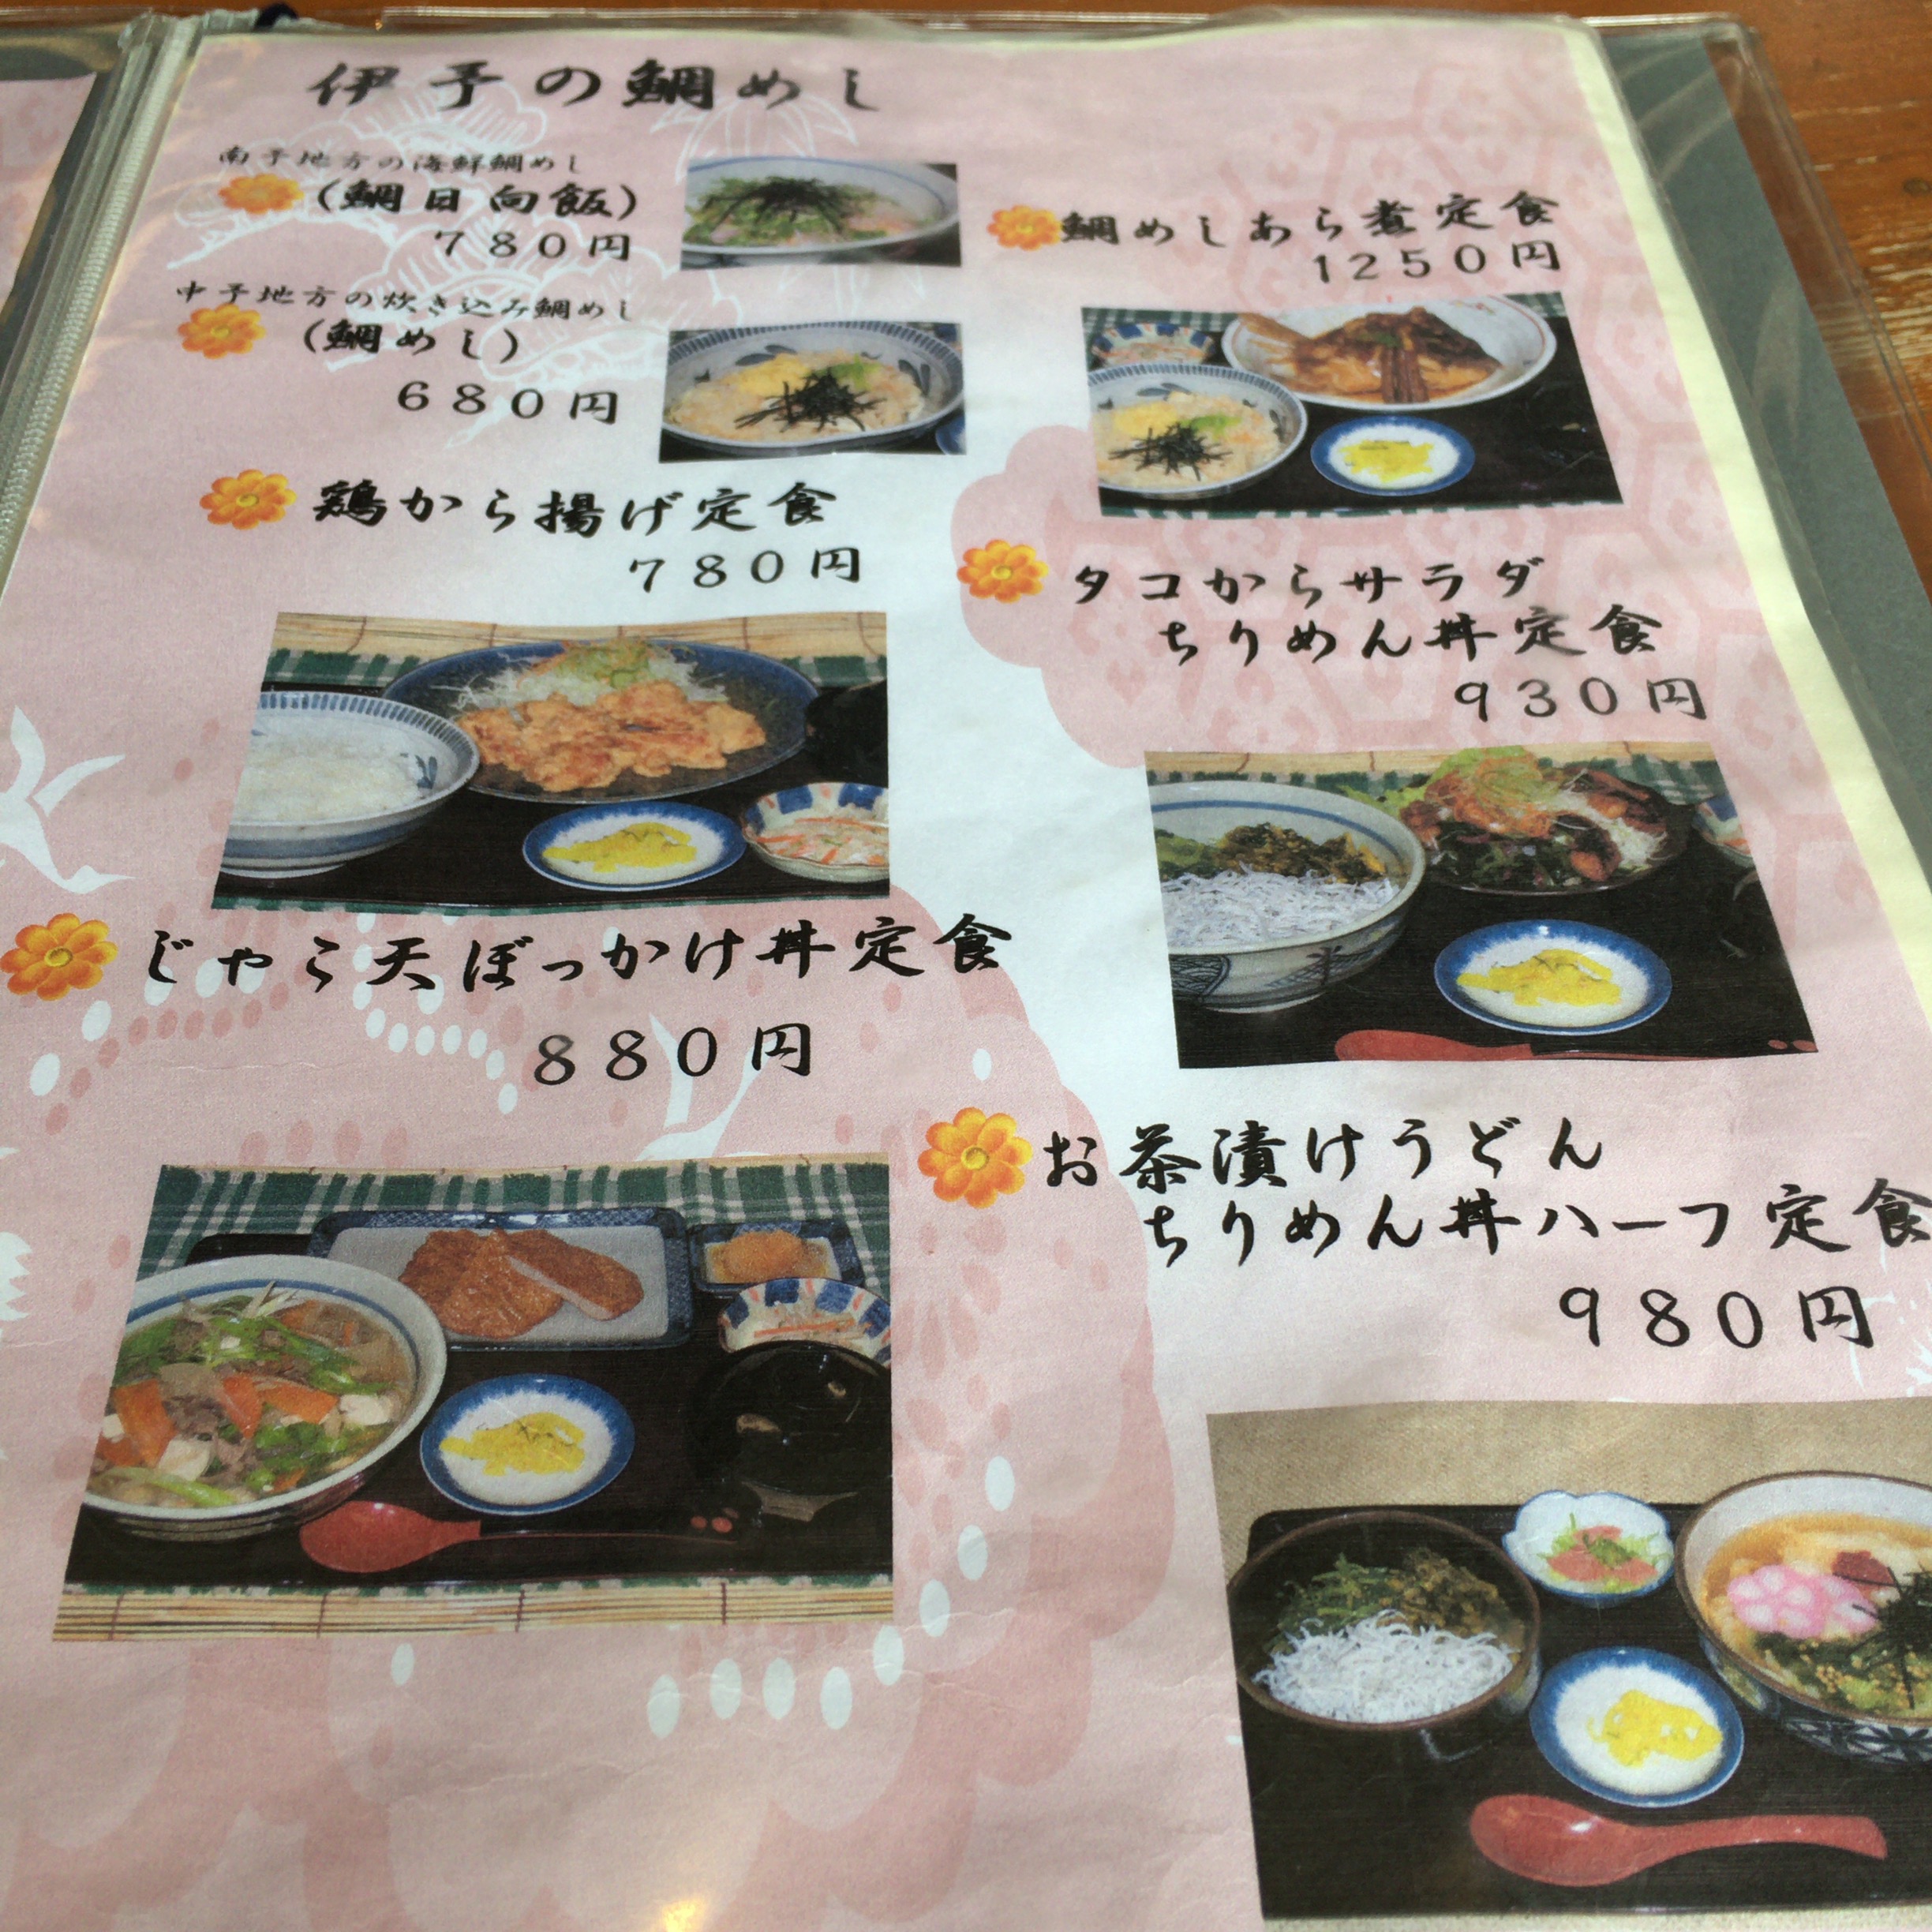 伊予の鯛めし
南予地方の海鮮鯛めし
(鯛日向飯)
780円
中予地方の炊き込み鯛めし
(鯛めし)
680円
鶏から揚げ定食
780円
じゃこ天ぼっかけ丼定食
880円
鯛めしあら煮定食
1250円
タコからサラダ
ちりめん丼定食
930円
お茶漬けうどん
ちりめん丼ハーフ定食
980円